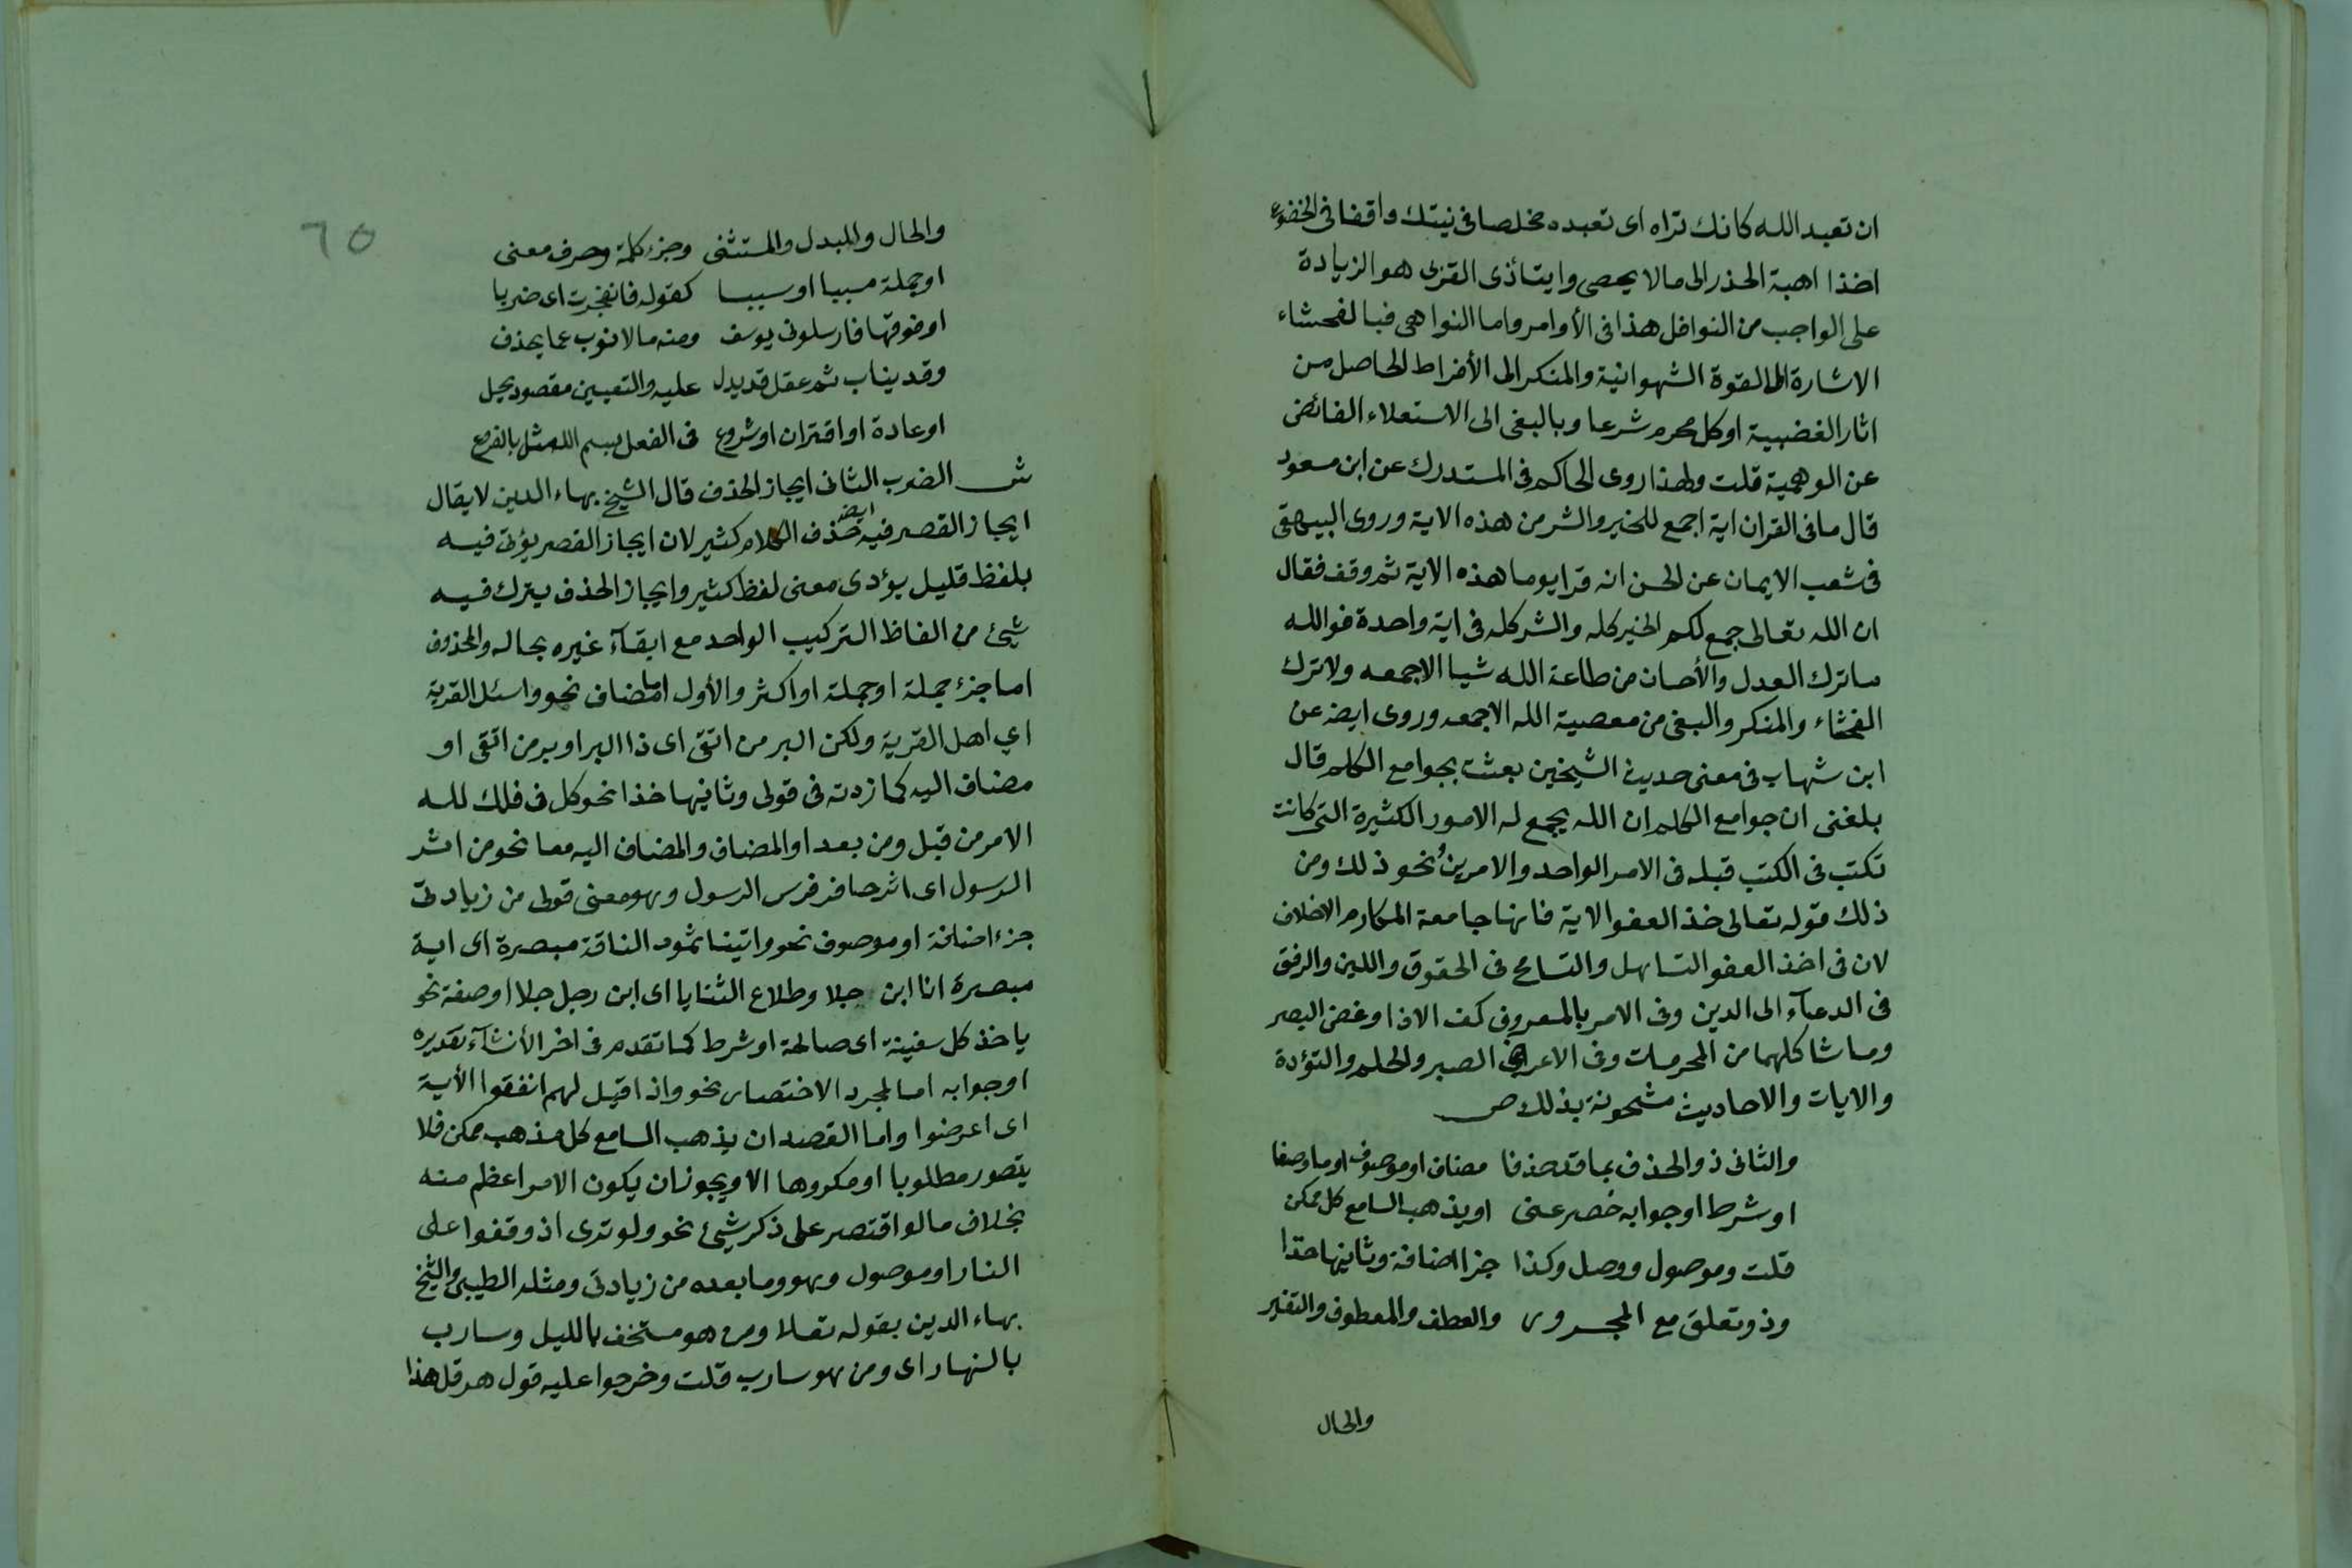 ان تعبد الله كانك تراه اى تعبده مخلصا فى نيتك واقفا فى الخضوع
اخذا اهبة الحذر الى مالا يحصى وايتائذى القربى هو الزيادة
على الواجب من النوافل هذا فى الأوامر واما النواهى فبالفحشاء
الاشارة الى القوة الشهوانية والمنكر الى الأفراط الحاصل من
اثار الغضبية او كل محرم شرعا وبالبغى الى الاستعلاء الفائض
عن الوهمية قلت ولهذا روى الحاكم فى المستدرك عن ابن مسعود
قال ما فى القران اية اجمع للخير والشر من هذه الاية وروى البيهقى
فى شعب الايمان عن الحسن انه قرا يوما هذه الاية ثم وقف فقال
ان الله تعالى جمع لكم الخير كله والشر كله فى اية واحدة فوالله
ما ترك العدل والأحسان من طاعة الله شيا الا جمعه ولا ترك
الفحشاء والمنكر والبغى من معصية الله الا جمعه وروى ايضه عن
ابن شهاب فى معنى حديث الشيخين بعثت بجوامع الكلم قال
بلغنى ان جوامع الكلم ان الله يجمع له الامور الكثيرة التى كانت
تكتب فى الكتب قبله فى الامر الواحد والامرين ونحو ذلك ومن
ذلك قوله تعالى خذ العفو الاية فانها جامعة المكارم الاخلاق
لان فى اخذ العفو التساهل والتسامح فى الحقوق واللين والرفق
فى الدعآء الى الدين وفى الامر بالمعروف كف الاذا وغض البصر
وما شاكلهما من المحرمات وفى الاعراض الصبر والحلم والتؤدة
والايات والاحاديث مشحونة بذلك ص
والثانى ذو الحذف بما قد حذفا مضاف او موصوف او ما وصفا
او شرط او جوابه خصر عنى او يذهب السامع كل ممكن
قلت وموصول ووصل وكذا جزا اضافة وثانيها حذا
وذو تعلق مع المجرور والعطف والمعطوف والتفير
والحال
٦٥
والحال والمبدل والمستثنى وجزء كلمة وحرف معنى
او جملة مسببا او سببا كقوله فانفجرت اى ضربا
او فوقها فارسلون يوسف ومنه مالا نوب عما يحذف
وقد يناب ثم عقل قد يدل عليه والتعيين مقصود يحل
او عادة او اقتران او شروع فى الفعل بسم الله مثل بالفرع
ش الضرب الثانى ايجاز الحذف قال الشيخ بهاء الدين لا يقال
ايجاز القصر فيه ايضه حذف الكلام كثير لان ايجاز القصر يؤتى فيه
بلفظ قليل يؤدى معنى لفظ كثير وايجاز الحذف يترك فيه
شيئ من الفاظ التركيب الواحد مع ابقآء غيره بحاله والمحذوف
اما جزء جملة او جملة او اكثر والأول اما مضاف نحو واسئل القرية
اي اهل القرية ولكن البر من اتقى اى ذا البر او بر من اتقى او
مضاف اليه كما زدته فى قولى وثانيها خذا نحو كل فى فلك لله
الامر من قبل ومن بعد او المضاف والمضاف اليه معا نحو من اثر
الرسول اى اثر حافر فرس الرسول وهو معنى قولى من زيادتى
جزء اضافة او موصوف نحو واتينا ثمود الناقة مبصرة اى اية
مبصرة انا ابن جلا وطلاع الثنايا اى ابن رجل جلا او صفة نحو
ياخذ كل سفينة اى صالحة او شرط كما تقدم فى اخر الأنشآء تقديره
او جوابه اما لمجرد الاختصار نحو واذا قيل لهم انفقوا الأية
اى اعرضوا واما القصد ان يذهب السامع كل مذهب ممكن فلا
يتصور مطلوبا او مكروها الا ويجوز ان يكون الامر اعظم منه
بخلاف مالو اقتصر على ذكر شيئ نحو ولو ترى اذ وقفوا على
النار او موصول وهو وما بعده من زيادتى ومثله الطيبى والشيخ
بهاء الدين بقوله تعالا ومن هو مستخف بالليل وسارب
بالنهار اى ومن هو سارب قلت وخرجوا عليه قول هرقل هذا